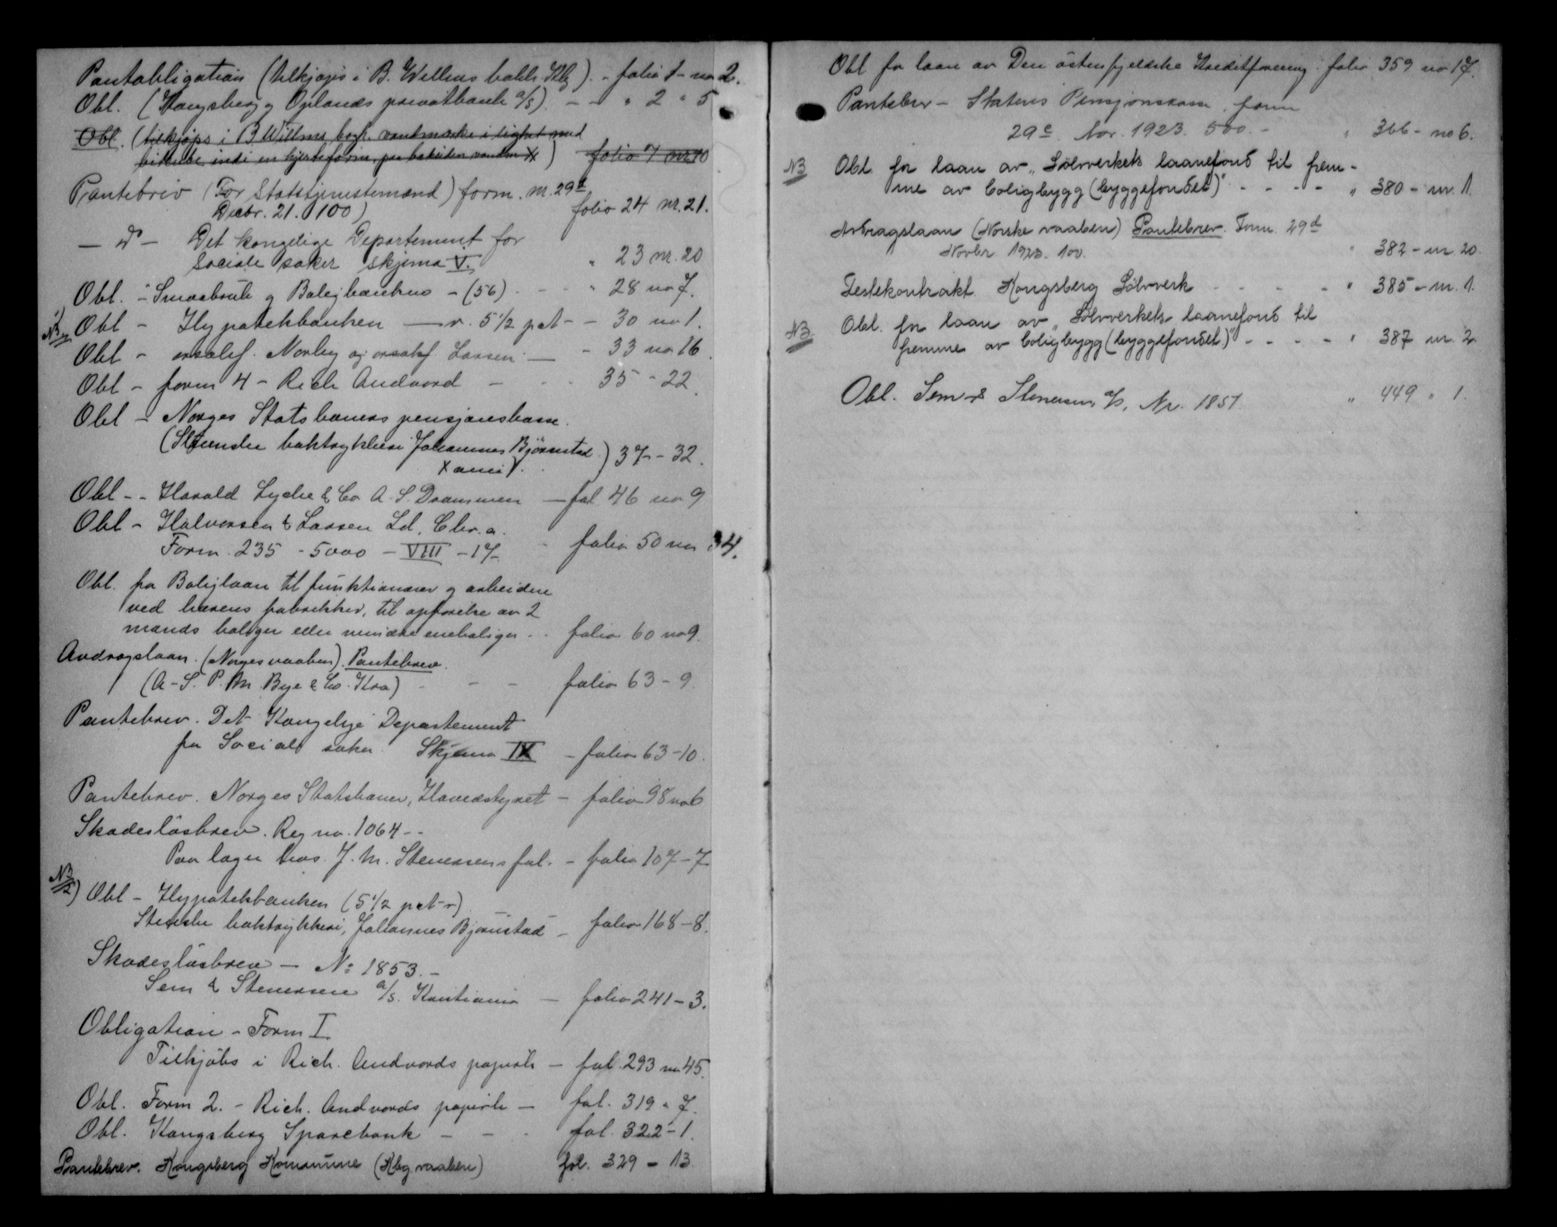 Pantobligation (tilkjøpis i B. Willens bokh. Kbg) - folio 1 - no 2.
Obl. (Kongsberg og Oplands privatbank a/s) - - " 2 " 5
Obl. (tilkjøps i B. Willens bogh. vandmærke i lighet med
folio 7 no 10
Pantebrev (For Statstjenestemænd) form. nr. 29d
Decbr. 21. 100) folio 24 nr. 21.
- d° - Det kongelige Departement for
Sociale saker skjema V. " 23 nr. 20
Obl. - Smaabruk og Boligbanken - (56) - - " 28 no 7.
1) NB Obl - Hypotekbanken - v. 5 1/2 pct - - 30 no 1.
Obl - orsalsf. Norby og orsakf Larsen - - 33 no 16
Obl - form 4 - Rich Andvord - - - 35 - 22
Obl - Norges Statsbaners pensjonskasse.
(Steenske boktrykkeri Johannes Bjørnstad) 37 - 32.
Obl - - Harald Lyche & Co A-S. Drammen - fol 46 no 9
Obl - Halvorsen & Larsen Ld. Chr.a.
Form. 235 - 5000 - VIII - 17 - folio 50 no 34.
Obl. for Boliglaan til funktionærer og arbeidere
ved hærens fabrikker, til opførelse av 2
mands boliger eller mindre eneboliger - - folio 60 no 9.
Avdragslaan. (Norges vaaben). Pantebrev.
(A-S. P. M. Bye & Co. Kra) - - - folio 63 - 9.
Pantebrev. Det Kongelige Departement
for Sociale saker. Skjema IX - folio 63 - 10.
Pantebrev. Norges Statsbaner, Hovedstyret - folio 98 no 6
Skadesløsbrev. Reg no. 1064 - -
Paa lager hos. J. M. Stenersens fol. - folio 107 - 7
NB 2) Obl - Hypotekbanken (5 1/2 pct - r)
Steenske boktrykkeri, Johannes Bjørnstad - folio 168 - 8.
Skadesløsbrev - No 1853. -
Sem & Stenersen a/s. Kristiania - folio 241 - 3.
Obligation - Form I
Tilkjøbs i Rich. Andvords papirh - fol. 293 no 45.
Obl. Form 2. - Rich. Andvords papirh - fol. 319 " 7.
Obl. Kongsberg Sparebank - - - fol. 322 - 1.
Pantebrev. Kongsberg Kommune (Kbg vaaben) fol. 329 - 13
Obl for laan av Den østenfjeldske Kreditforening. folio 359 no 17.
Pantebrev - Statens Pensjonskasse. form
29c. Nov. 1923. 500. - " 366 - no 6.
NB Obl for laan av "Sølvverkets laanefond til frem-
me av boligbygg (byggefondet)" - - - - " 380 - nr. 1.
Avdragslaan (Norske vaaben) Pantebrev. Form. 29d
Novbr 1923. 100. " 382 - nr 20.
Festekontrakt Kongsberg Sølvverk - - - - " 385 - nr. 1.
NB Obl. for laan av "Sølvverkets laanefond til
fremme av boligbygg (byggefondet)" - - - - " 387 nr. 2
Obl. Sem & Stenersen a/s, Nr. 1851. " 449 " 1.